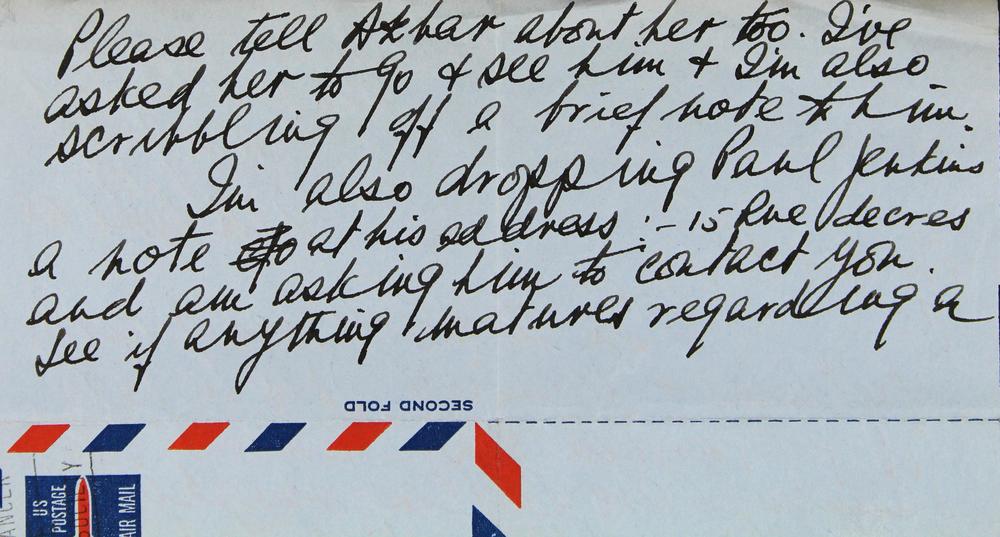 Please tell Akbar about her too. I've
asked her to go & see him & I'm also
scribbling off a brief note to him.
I'm also dropping Paul Jenkins
a note at his address :- 15 Rue decres
and am asking him to contact you.
See if anything matures regarding a
SECOND FOLD
US
POSTAGE
AIR MAIL